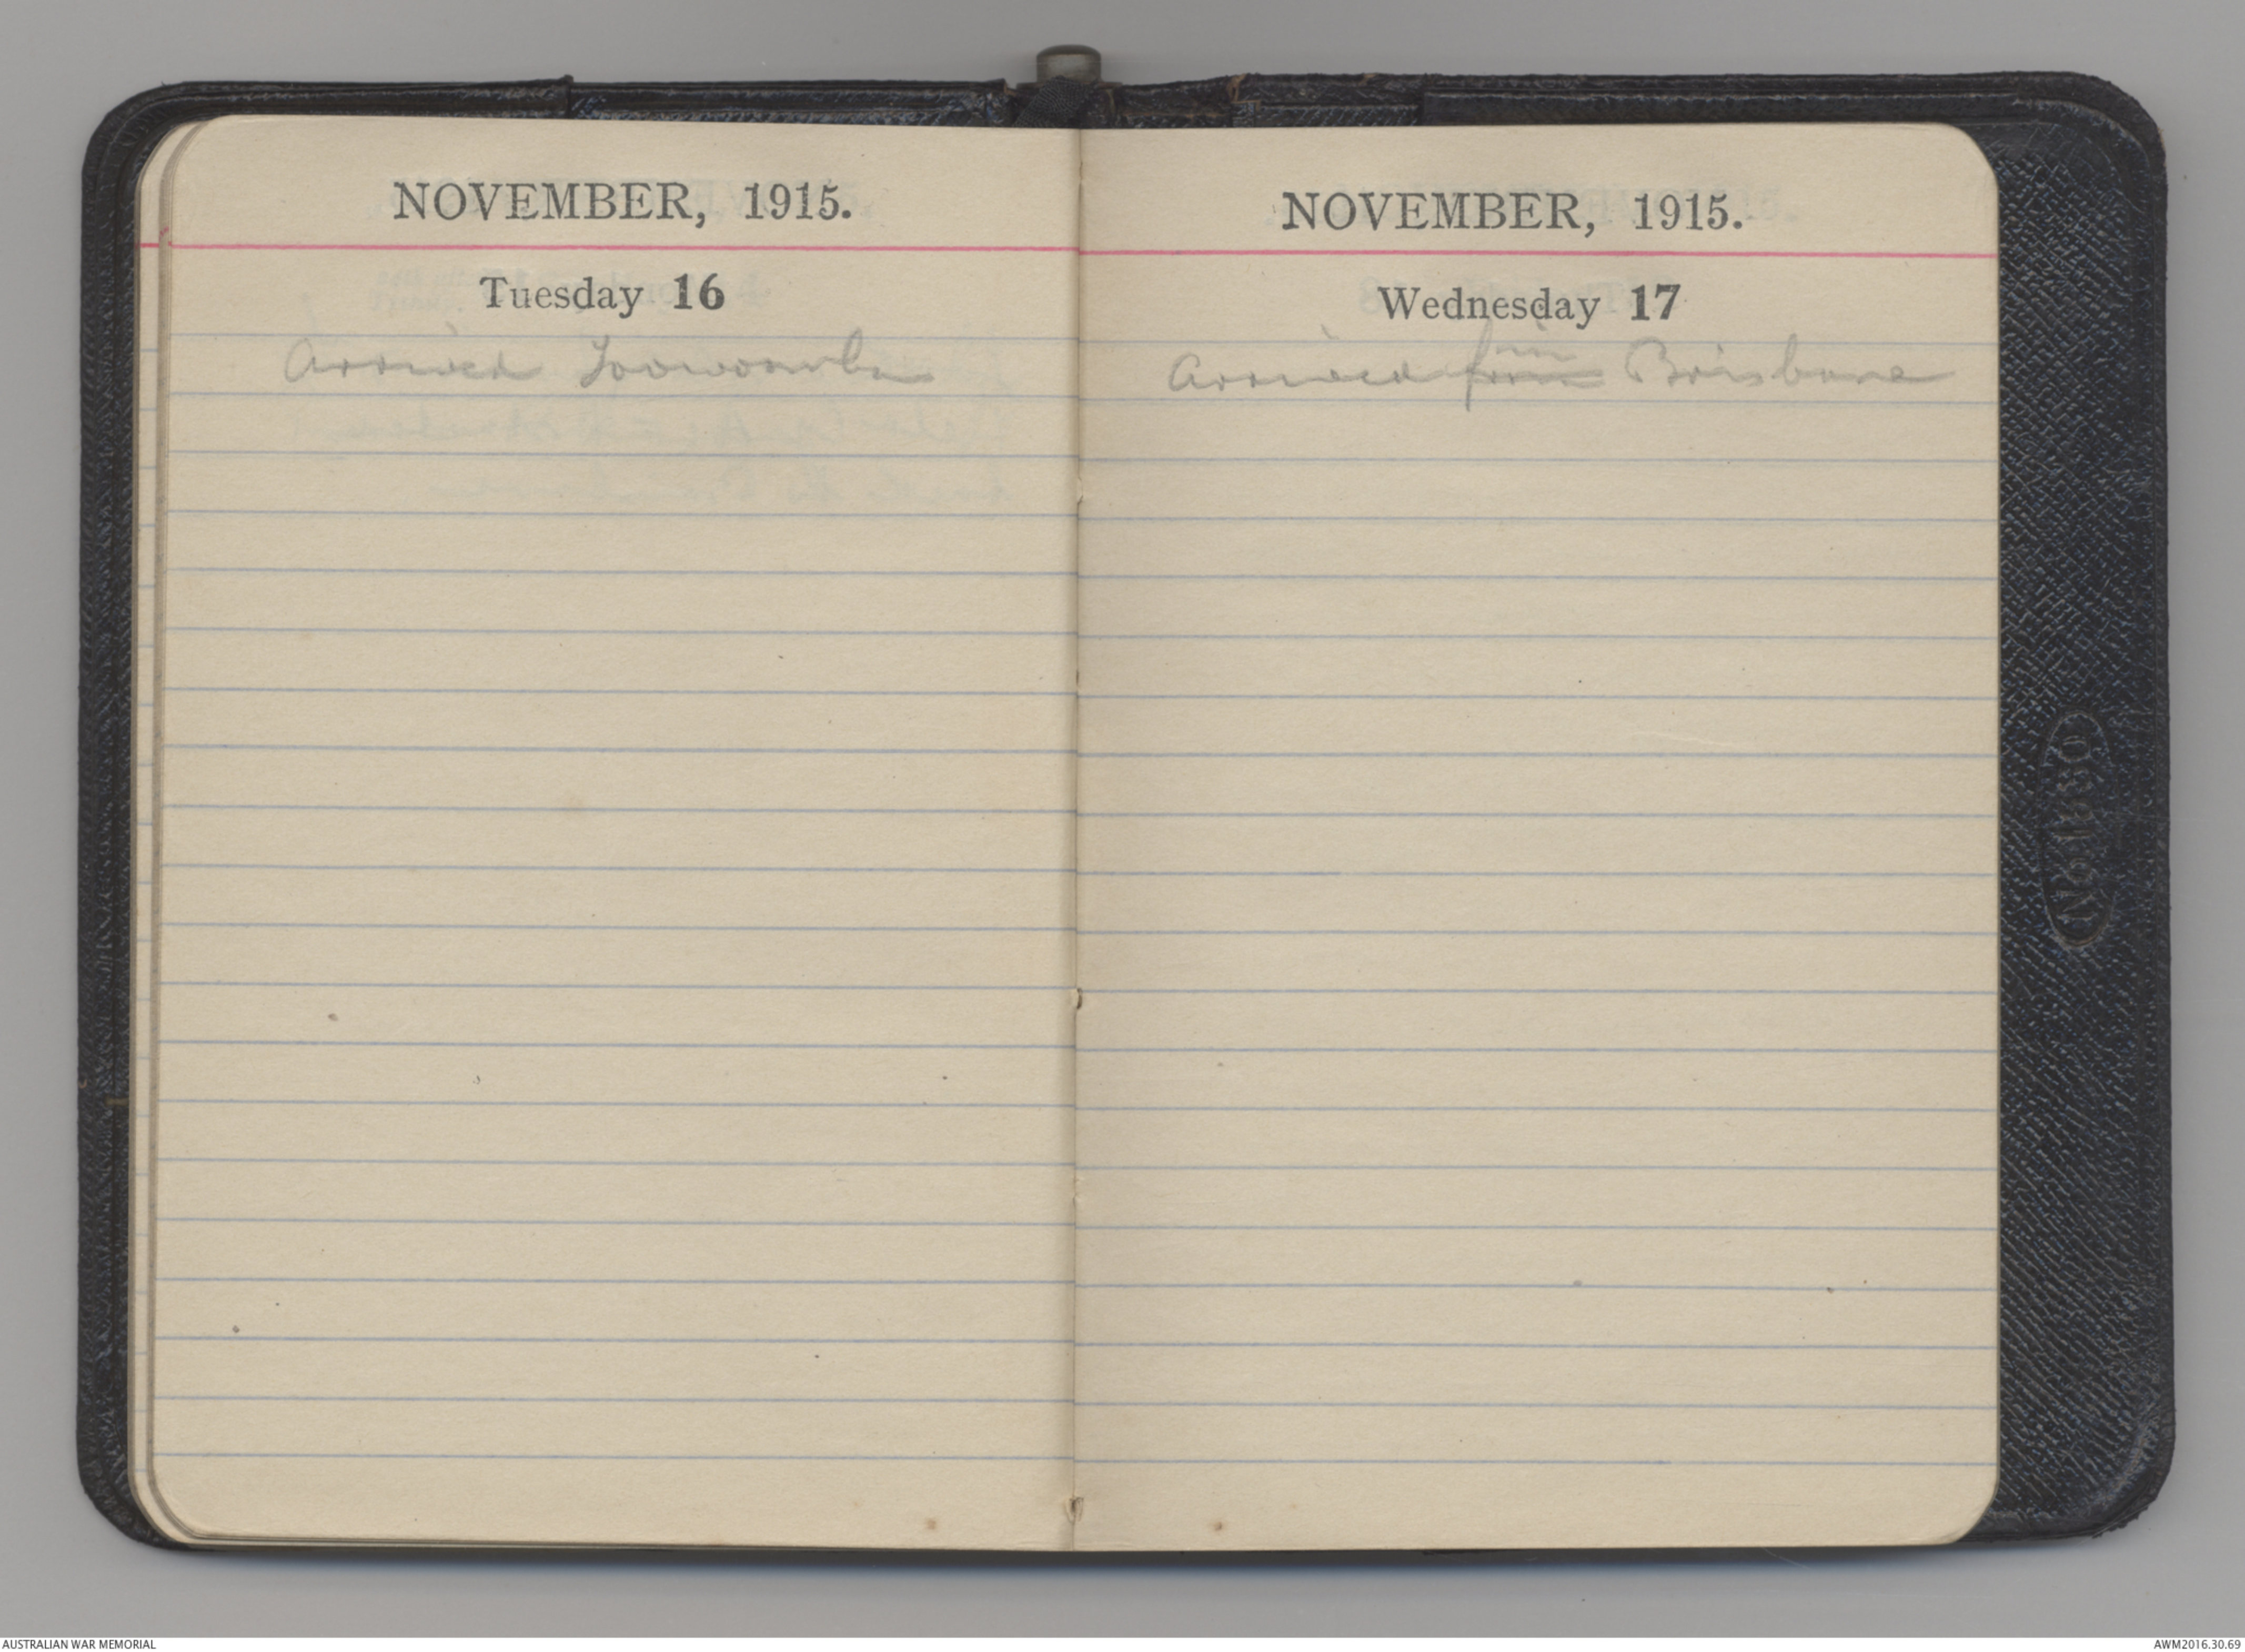 NOVEMBER, 1915.
Tuesday 16
Arrived Toowoomba
NOVEMBER, 1915.
Wednesday 17
in
Arrived from Brisbane
ORMON
AUSTRALIAN WAR MEMORIAL
AWM2016.30.69